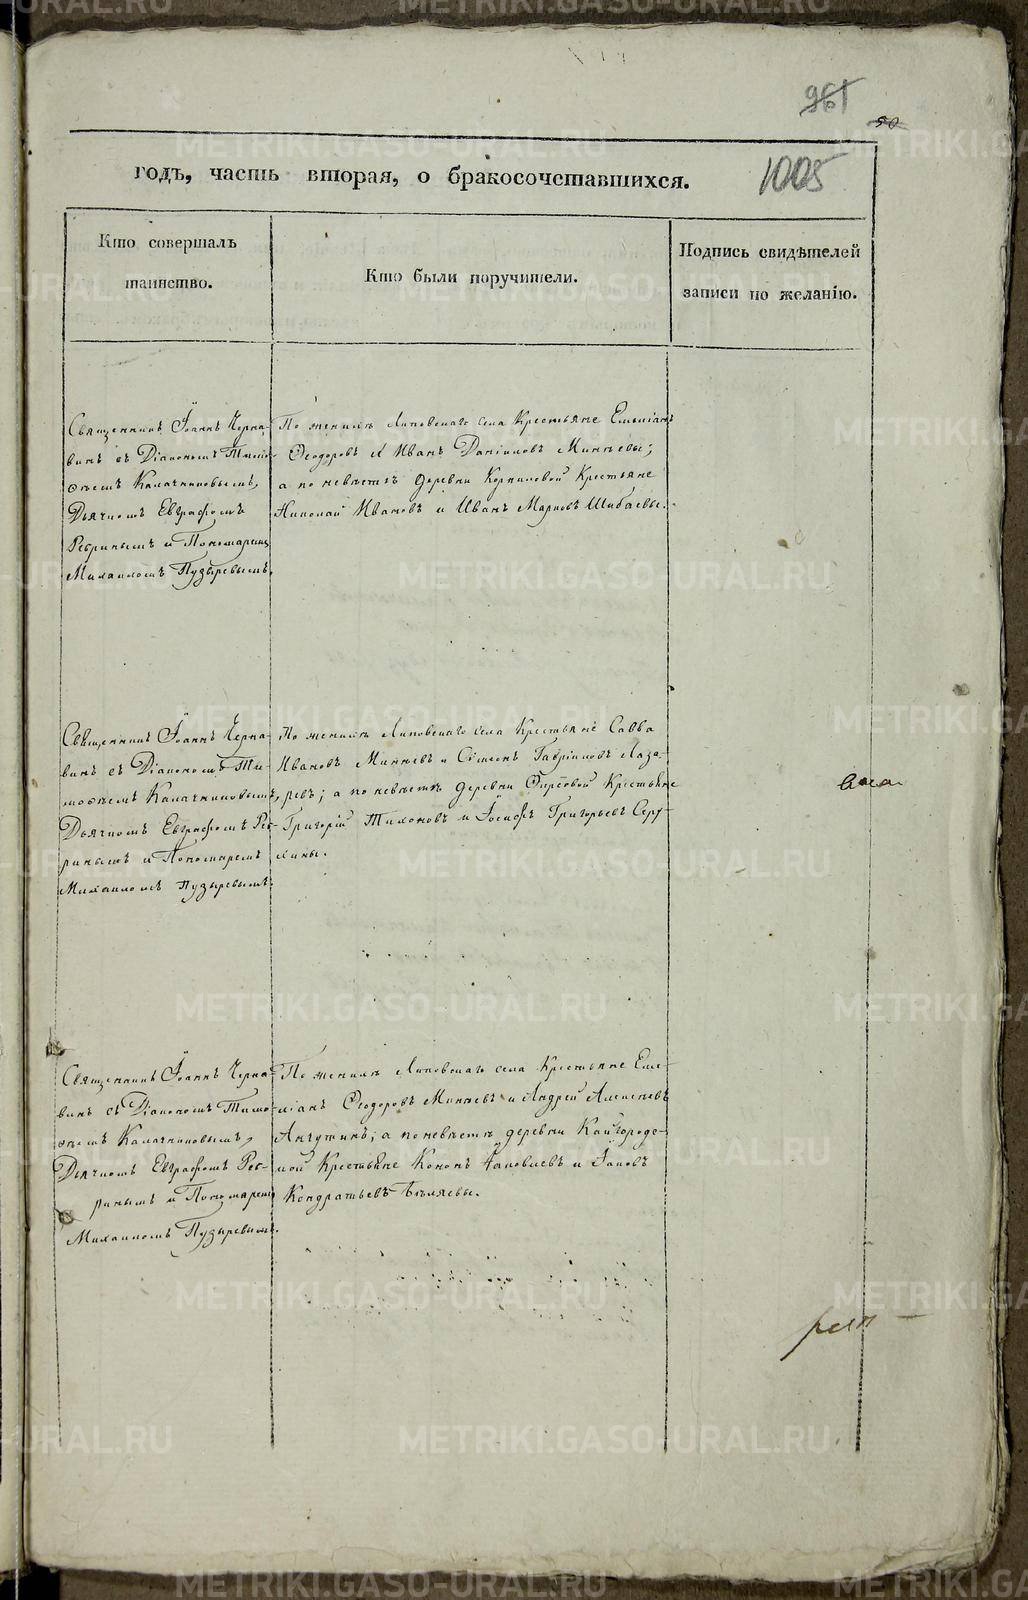 961
50
годъ, часть вторая, о бракосочетавшихся.
1005
Кто совершалъ
таинство.
Кто были поручители.
Подпись свидѣтелей
записи по желанію.
Священникъ Іоаннъ Черна-
винъ съ Діакономъ Тимо-
ѳеемъ Калачниковымъ,
Дьячкомъ Евграфомъ
Ребринымъ и Пономаремъ
Михаиломъ Пузыревымъ.
По женихѣ Липовскаго села Крестьяне Емеліанъ
Ѳеодоровъ и Иванъ Даніиловъ Минѣевы;
а по невѣстѣ деревни Корниловой Крестьяне
Николай Ивановъ и Иванъ Марковъ Шибаевы.
Священникъ Іоаннъ Черна-
винъ съ Діакономъ Ти-
моѳеемъ Калачниковымъ,
Дьячкомъ Евграфомъ Реб-
ринымъ и Пономаремъ
Михаиломъ Пузыревымъ.
По женихѣ Липовскаго села Крестьяне Савва
Ивановъ Минѣевъ и Сімеонъ Гавріиловъ Лаза-
ревъ; а по невѣстѣ деревни Крестьяне
Григорій Тихоновъ и Іосифъ Григорьевъ Серу-
хины.
Священникъ Іоаннъ Черна-
винъ съ Діакономъ Тимо-
ѳеемъ Калачниковымъ,
Дьячкомъ Евграфомъ Реб-
ринымъ и Пономаремъ
Михаиломъ Пузыревымъ.
По женихѣ Липовскаго села Крестьяне Еме-
ліанъ Ѳеодоровъ Минѣевъ и Андрей Алексѣевъ
а по невѣстѣ деревни Кайгородс-
кой Крестьяне Кононъ Іаковлевъ и Іаковъ
Кондратьевъ Бѣляевы.
METRIKI.GASO-URAL.RU